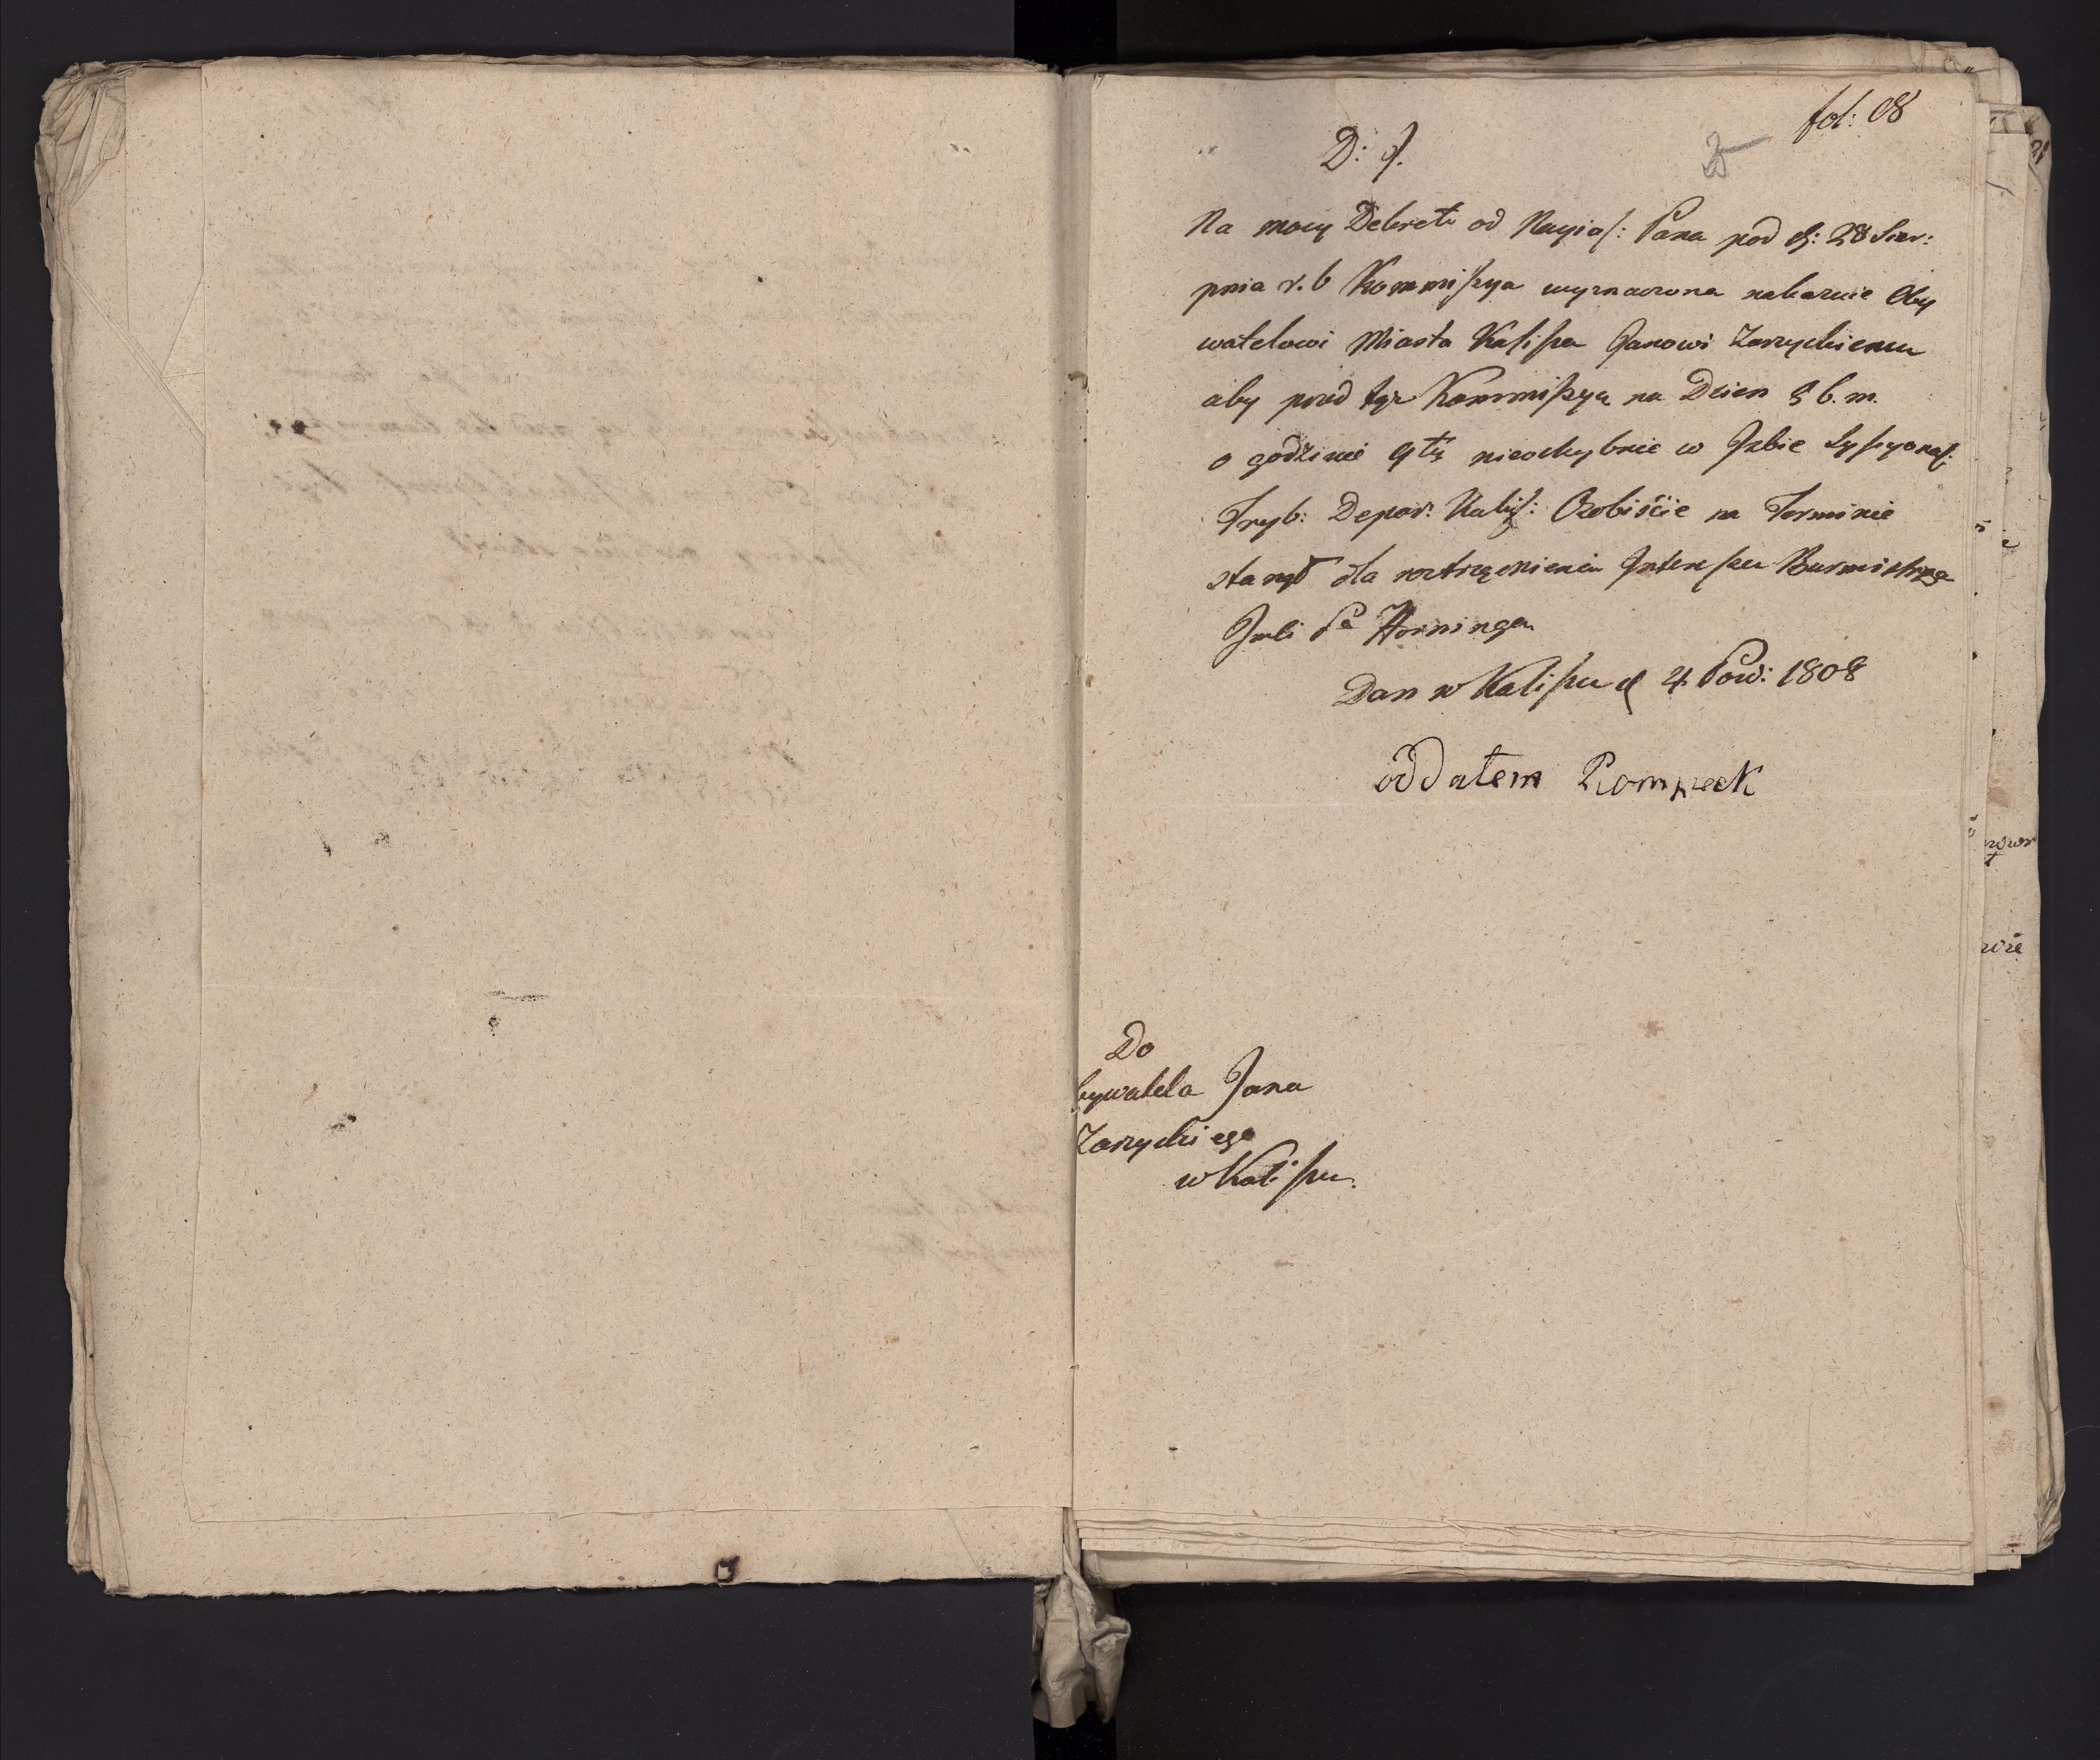 fol: 08
D: J.
Na mocy Dekretu od Nayias: Pana pod d: 28 Sier:
pnia r. b Kommissya wyznaczona nakazuie Oby
watelowi Miasta Kalisza Janowi Zarzyckiemu
aby przed tąż Kommissyą na Dzien 5 b. m.
o godzinie 9tę nieochybnie w Izbie Sessyonal:
Tryb: Depar: Kalis: Osobiście na Terminie
stanął dla roztrząśnienia Interessu Burmistrza
Juli Pa Horninga
Dan w Kaliszu d 4 Paw: 1808
oddatem Rompeck
Do
bywatela Jana
Zarzyckiego
w Kaliszu.